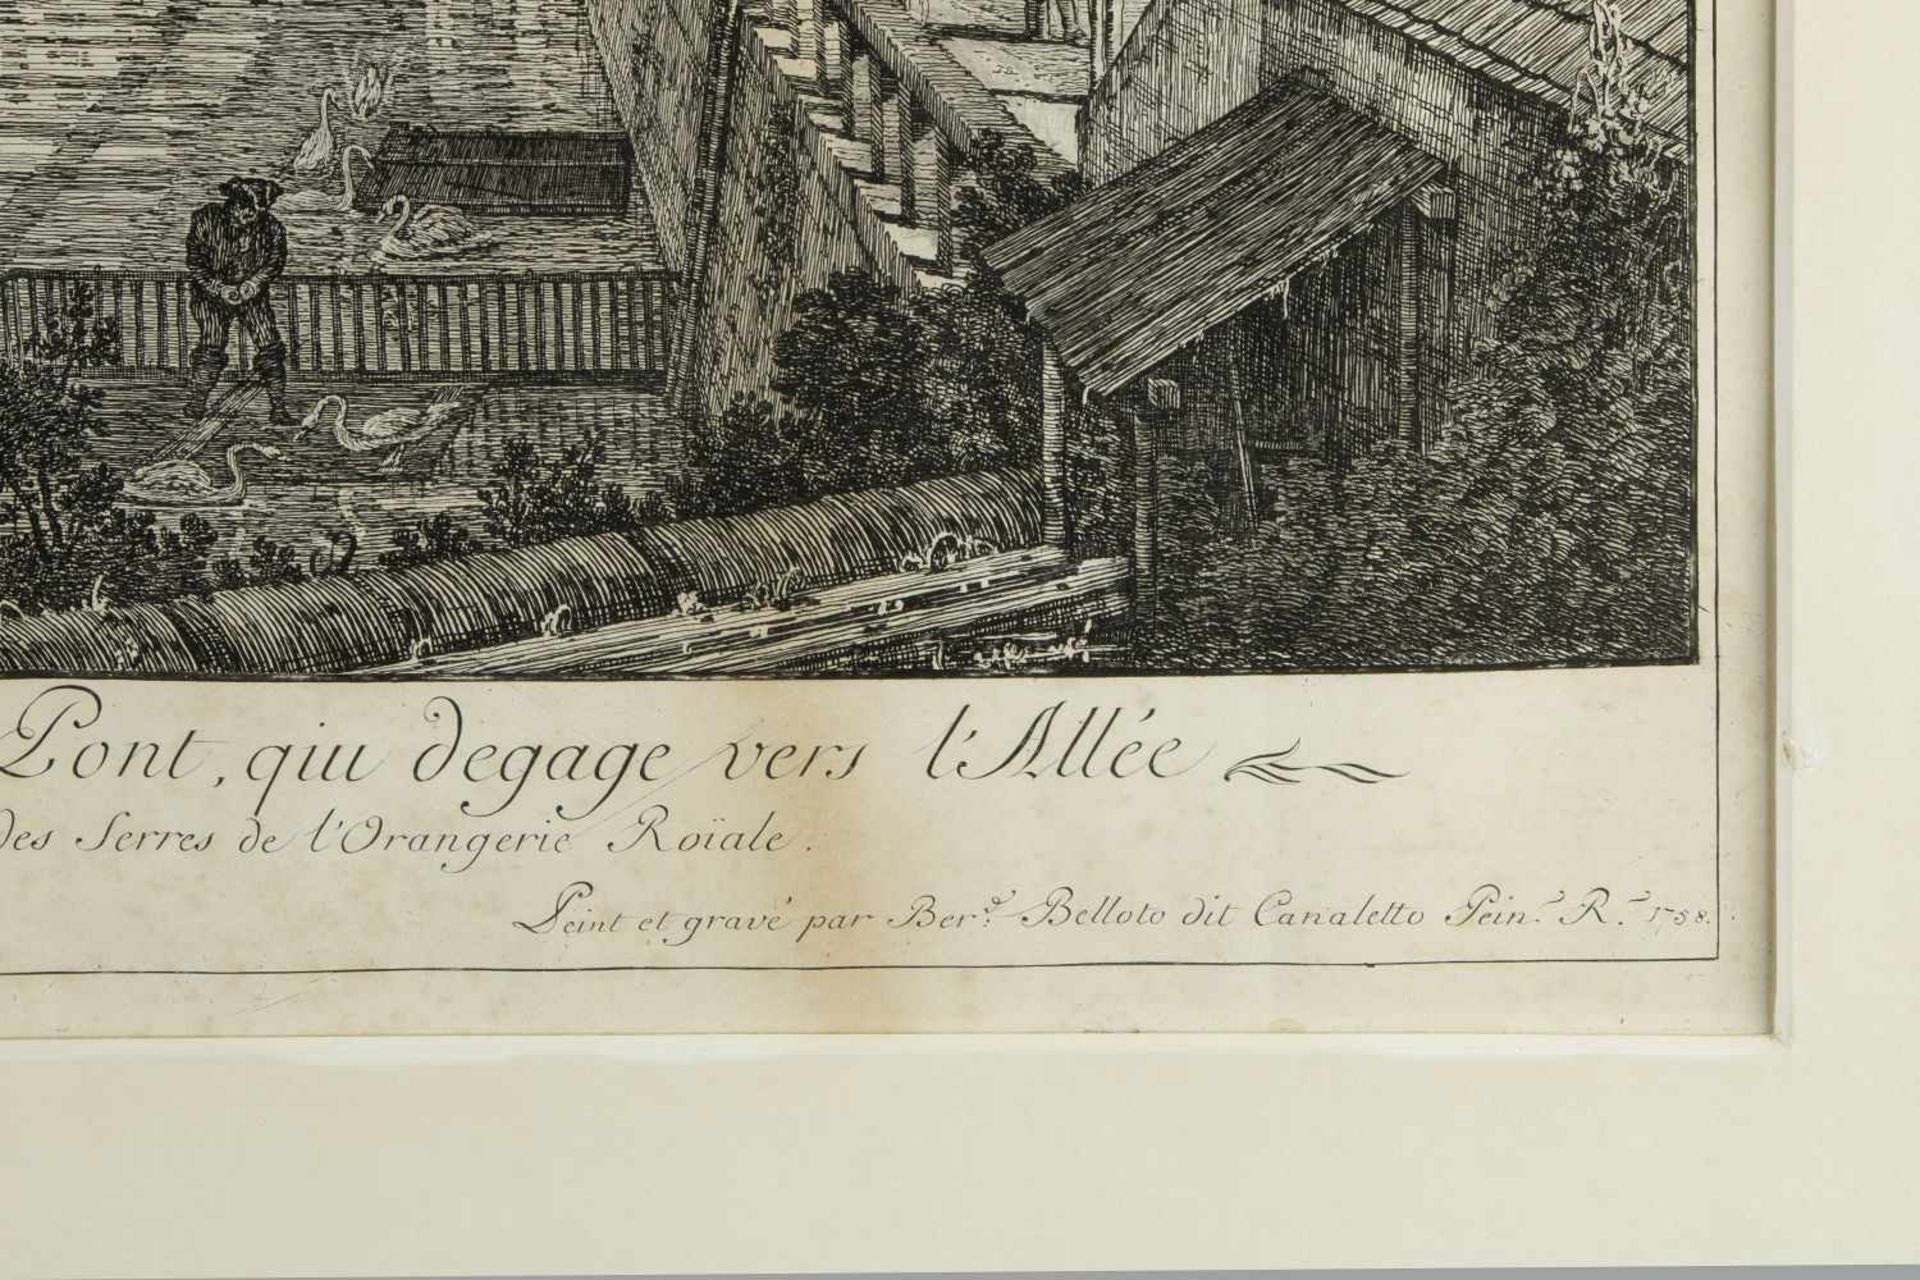 Pont, qui degage vers l'Allée
des Serres de l'Orangerie Roïale.
Peint et gravé par Ber.d Belloto dit Canaletto Pein.r R.l 1758.